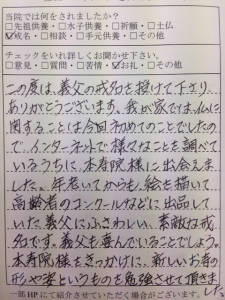 当院では何をされましたか?
□先祖供養・□水子供養・□祈願・□土仏
☑戒名・□相談・□手元供養・□その他
チェックをいれ詳しくお聞かせ下さい。
□意見・□質問・□苦情・☑お礼・□その他
この度は、義父の戒名を授けて下さり
ありがとうございます。我が家では、仏に
関することは今回初めてのことでしたの
で、インターネットで様々なことを調べて
いるうちに、本寿院様に出会えま
した。年老いてからも、絵を描いて
高齢者のコンクールなどに出品して
いた義父にふさわしい、素敵な戒
名です。義父も喜んでいることでしょう。
本寿院様をきっかけに、新しいお寺の
形や姿というものを勉強させて頂きま
した。
一部HPにて紹介させていただく場合がございます。